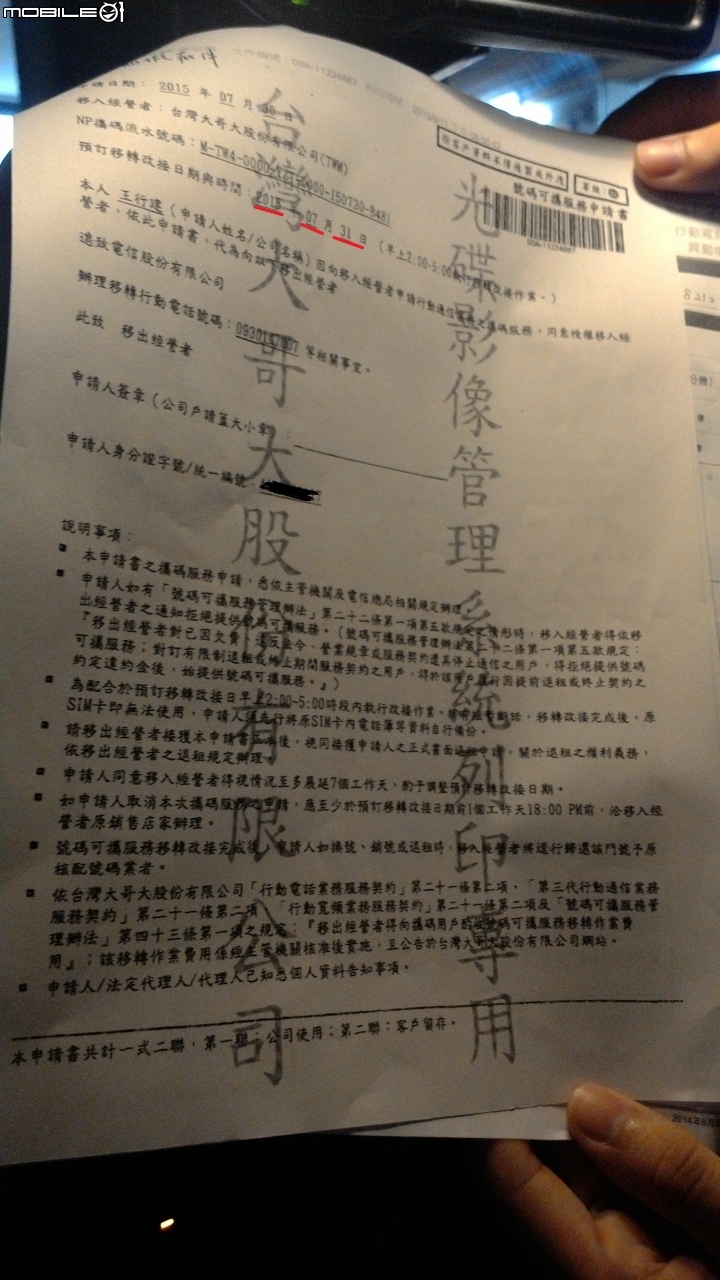 MOBILE01
文件編號：00A-11224887
申請日期： 2015 年 07 月 30 日
移入經營者：台灣大哥大股份有限公司(TWM)
※客戶資料不得複製或外洩
號碼可攜服務申請書
00A-11224887
NP攜碼流水號碼：
預訂移轉改接日期與時間：2015 年 07 月 31 日 (早上2:00-5:00執行移轉改接作業。)
本人 王行建 (申請人姓名/公司名稱) 因向移入經營者申請行動通信業務之攜碼服務，同意授權移入經
營者，依此申請書，代為向以下移出經營者
遠致電信股份有限公司
辦理移轉行動電話號碼： 等相關事宜。
此致 移出經營者
申請人簽章 (公司戶請蓋大小章) ：
申請人身分證字號/統一編號：
說明事項：
▪ 本申請書之攜碼服務申請，悉依主管機關及電信總局相關規定辦理。
▪ 申請人如有「號碼可攜服務管理辦法」第二十二條第一項第五款規定之情形時，移入經營者得依移
出經營者之通知拒絕提供號碼可攜服務。(號碼可攜服務管理辦法第二十二條第一項第五款規定：
『移出經營者對已因欠費、違反法令、營業規章或服務契約遭其停止通信之用戶，得拒絕提供號碼
可攜服務；對訂有限制退租或終止期間服務契約之用戶，得於該用戶履行因提前退租或終止契約之
約定違約金後，始提供號碼可攜服務。』)
▪ 為配合於預訂移轉改接日早上2:00-5:00時段內執行改接作業，移轉改接完成後，原
SIM卡即無法使用，申請人須先行將原SIM卡內電話簿等資料自行備份。
▪ 請移出經營者接獲本申請書正本後，視同接獲申請人之正式書面退租申請，關於退租之權利義務，
依移出經營者之退租規定辦理。
▪ 申請人同意移入經營者得視情況至多展延7個工作天，酌予調整預訂移轉改接日期。
▪ 如申請人取消本次攜碼服務之申請，應至少於預訂移轉改接日期前1個工作天18:00 PM前，洽移入經
營者原銷售店家辦理。
▪ 號碼可攜服務移轉改接完成後，申請人如換號、銷號或退租時，移入經營者將逕行歸還該門號予原
核配號碼業者。
▪ 依台灣大哥大股份有限公司「行動電話業務服務契約」第二十一條第二項、「第三代行動通信業務
服務契約」第二十一條第二項、「行動寬頻業務服務契約」第二十一條第二項及「號碼可攜服務管
理辦法」第四十三條第一項之規定：『移出經營者得向攜碼用戶酌收號碼可攜服務移轉作業費
用』；該移轉作業費用係經主管機關核准後實施，且公告於台灣大哥大股份有限公司網站。
▪ 申請人/法定代理人/代理人已知悉個人資料告知事項。
本申請書共計一式二聯，第一聯：公司使用；第二聯：客戶留存。
台灣大哥大股份有限公司
光碟影像管理系統列印專用
行動電
異動申
8212
2014年8月